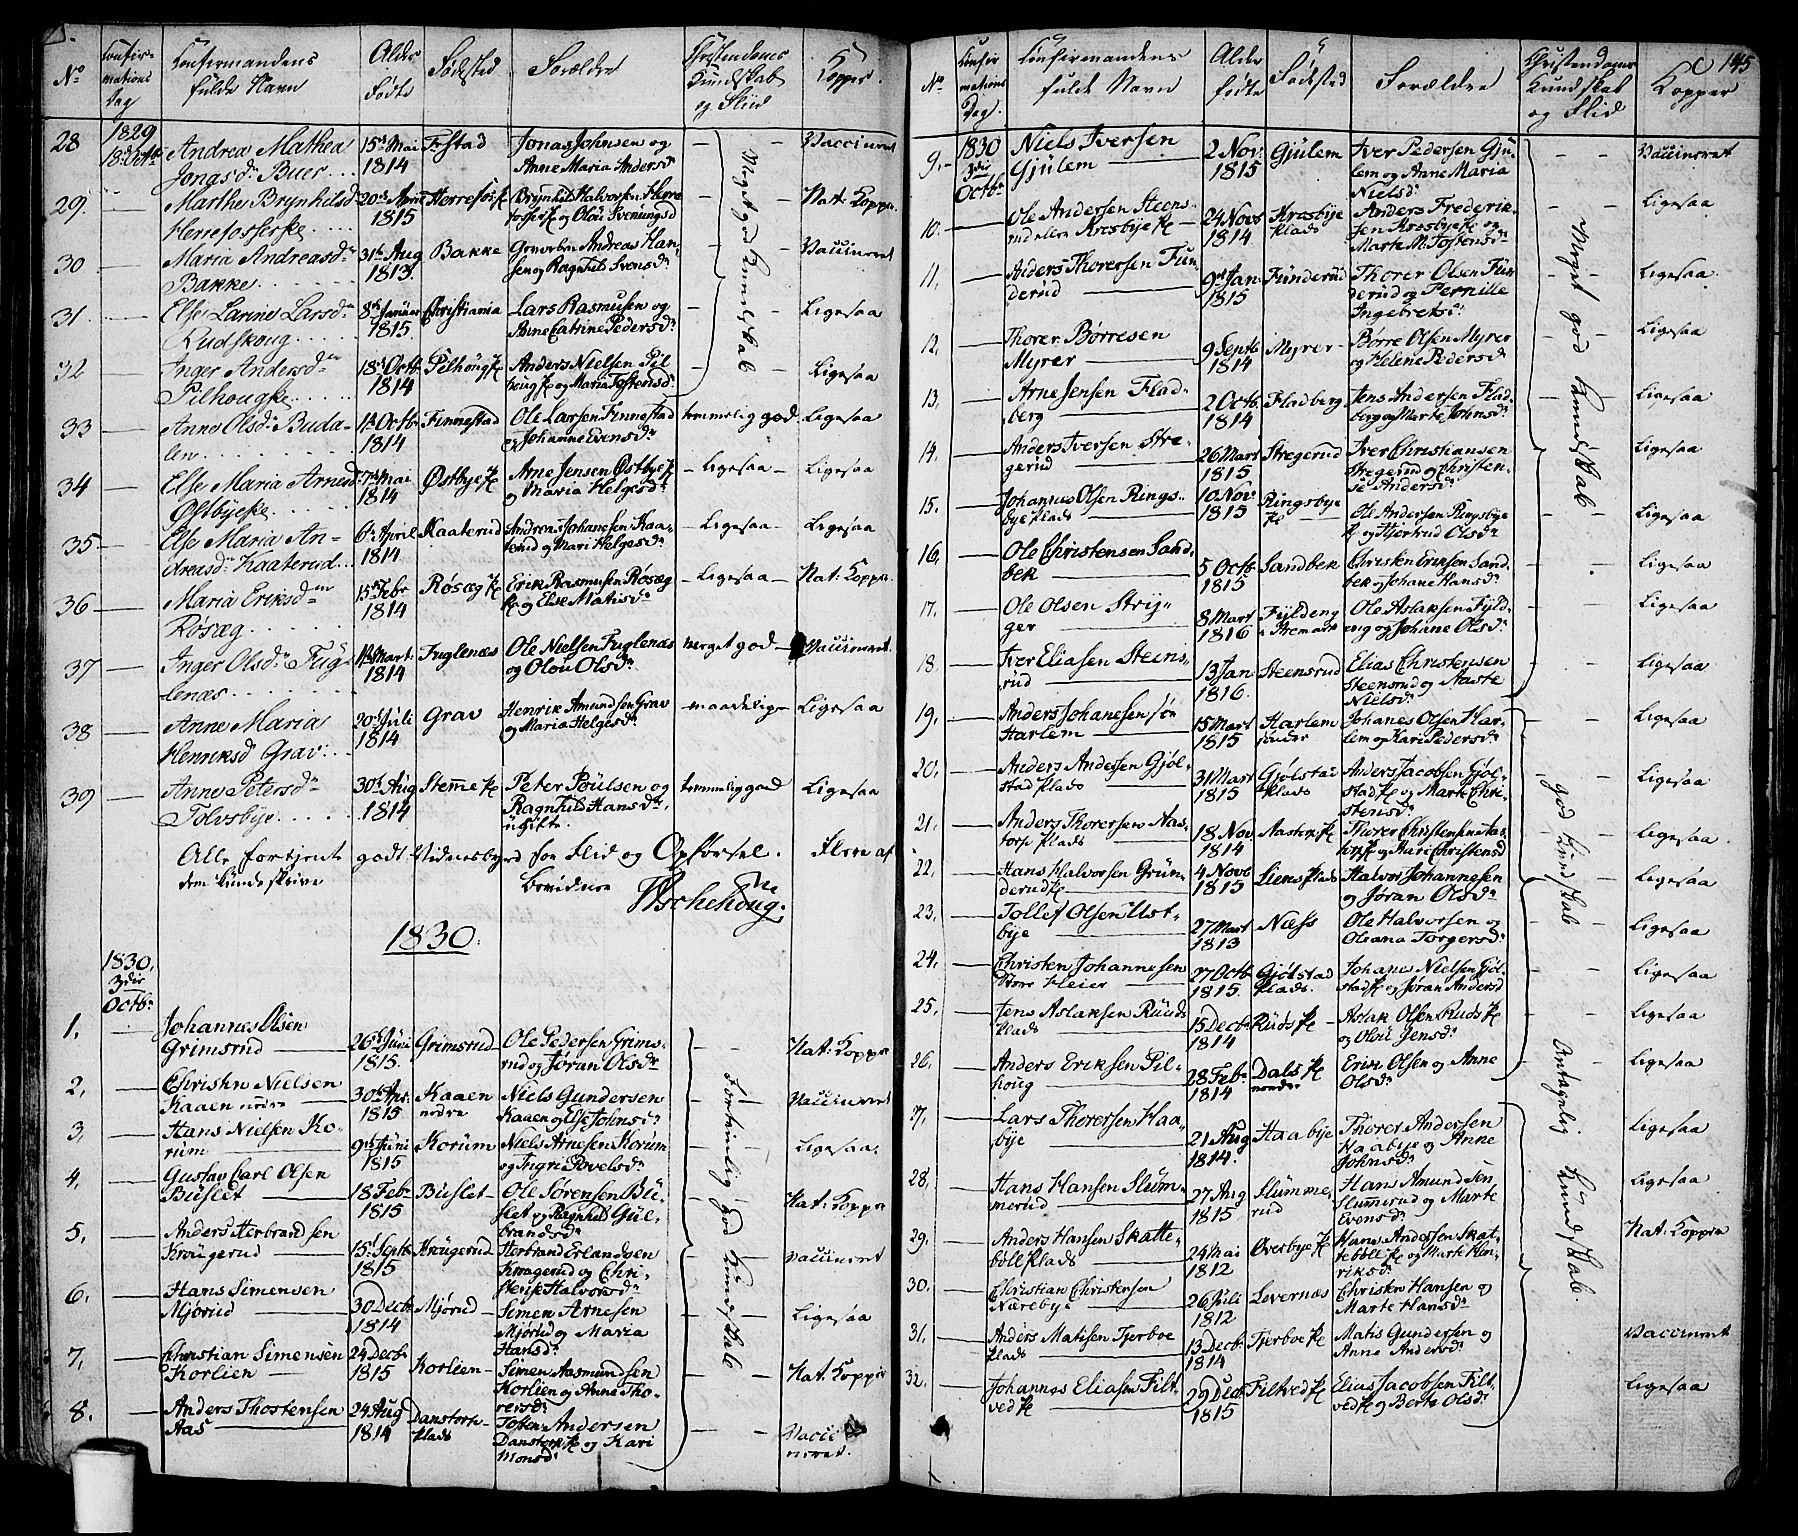 No
Confir-
mations
Dag
Confirmandens
fulde Navn
Alder
Fødte
Fødested
Forældre
Christendoms
Kundskab
og Fliid
Kopper.
1829
28
18de Octb
Andrea Mathea
Jonasdr Buer
15de Mai
1814
Festad
Jonas Johnsen og
Anne Maria Andersdr
Meget god Kundskab
Vaccineret
29.
Marthe Brynhildsdr
Herrefosseske
1815
Brynhild Halvorsen Herre
fosseje og Olou Svenungsd
Nat. Kopper.
30
Maria Andreasdr
Bakke
31te Aug
1813.
Bakke
Gevorben Andreas Han-
sen og Ragnhild Svensdr
Vaccineret
31.
Else Larine Larsdr
Rudskoug
8de Januar
1815.
Christiania
Lars Rasmusen og
Anne Catrine Pedersdr
Ligesaa
32
Inger Andersdr
Pilhougske
18de Octb
1814
Pilhougje
Anders Nielsen Pil
hougje og Maria Tostensdr
Ligesaa
33
Anne Olsdr Buda-
len
11te Octb
1814
Finnestad
Ole Larsen Finnestad
og Johanne Evensdr
temmelig god
Ligesaa
34
Else Maria Arnesdr
Østbyeske
7de Mai
1814
Østbyeje
Arne Jensen Østbyeje
og Maria Helgesdr
Ligesaa
Ligesaa
35
Else Maria An-
dreasdr Kaaterud
6te April
1814
Kaaterud
Andreas Johanesen Kaa-
terud og Mari Helgesdr
Ligesaa
Ligesaa
36
Maria Eriksdr
Røsæg
15de Febr
1814
Røsægje
Erik Rasmusen Røsæg
je og Else Matisdr
Ligesaa
Nat: Kopper
37
Inger Olsdr Fug-
lenæs
11te Mart.
1814
Fuglenæs
Ole Nielsen Fuglenæs
og Olou Olsdr
meget god
Vaccineret
38
Anne Maria
Henriksd Grav
20de Juli
1814
Grav
Henrik Amundsen Grav
og Maria Helgesdr
maadelig
Ligesaa
39
Anne Petersdr
Tolvsbye
30te Aug
1814
Stemmeje
Peter Poulsen og
Ragnhild Hansdr
ugifte.
temmelig god
Ligesaa
Alle fortjent godt Vidnesbyrd for Flid og Opførsel. Flere af
dem kunde skrive
bevidner
Wschehoug.
1830.
1830.
3die
Octbr
1.
Johannes Olsen
Grimsrud
26de Juni
1815.
Grimsrud
Ole Pedersen Grims-
rud og Jøran Olsdr
Fortrinlig god Kundskab
Nat: Kopper
2,
Christen Nielsen
Kaaen nedre
30te Apr:
1815
Kaaen
nedre
Niels Gundersen
Kaaen og Else Johnsdr
Vaccineret
3,
Hans Nielsen Ko-
rum
9de Juni
1815
Korum
Niels Arnesen Korum
og Ingri Povelsdr
Ligesaa.
4,
Gustav Carl Olsen
Buslet
18 Febr
1815
Buslet
Ole Sørensen Bu-
slet og Ragnhil Gul-
brandsdr
Nat: Kopper
5,
Anders Herbrandsen
Krougerud
15de Septb
1815
Krougerud
Herbrand Erlandsen
Kragerud og Chri-
stense Halvorsdr
Vaccineret
6,
Hans Simensen
Mjørud
30 Decbr
1814
Mjørud
Simen Arnesen
Mjørud og Maria
Hansdr
Ligesaa
7,
Christian Simensen
Korlien
24 Decbr
1815
Korlien
Simen Aasmundsen
Korlien og Anne Tho-
rersdr
Nat. Kopper
8.
Anders Thostensen
Aas
24 Aug
1814
Danstorp-
plads
Tosten Andersen
Danstorpje og Kari
Monsdr
Vacci
neret.
145
No
Confir
mations
Dag.
Confirmandens
fulde Navn
Alder
fødte
Fødested
Forældre
Christendoms
Kundskab
og Flid
Kopper
1830
3die
Octbr
9.
Niels Iversen
Gjulem
2 Nov.
1815
Gjulem
Iver Pedersen Gju-
lem og Anne Maria
Nielsdr
Meget god Kundskab
Vaccineret
10.
Ole Andersen Steens-
rud eller Krosbyeje
24 Novb
1814
Krosbye
plads
Anders Frederik-
sen Krosbyeje og
Marte M. Tostensdr
Ligesaa
11,
Anders Thorersen Fun-
derud
9de Jan.
1815
Funderud
Thorer Olsen Fun-
derud og Pernille
Ingebretsdr
Ligesaa.
12,
Thorer Børresen
Myrer
9 Septb
1814
Myrer
Børre Olsen Myrer
og Helene Pedersdr
Ligesaa
13,
Arne Jensen Flad-
berg
2 Octb.
1814
Fladberg
Jens Andersen Flad-
berg og Marte Johnsdr
Ligesaa
14.
Anders Iversen Stre-
gerud
26 Mart
1815
Stregerud
Iver Christiansen
Stregerud og Christen-
se Andersdr
Ligesaa
15,
Johannes Olsen Rings-
bye plads
10 Nov.
1815
Ringsbye
je
Ole Andersen Ringsbye
je og Hjertrud Olsdr
Ligesaa
16,
Ole Christensen Sand-
bek
5 Octb.
1815
Sandbek
Christen Eriksen Sand-
bek og Johane Hansdr
Ligesaa
17,
Ole Olsen Strij-
ger
8 Mart
1816
Fylding
i Aremark
Ole Aslaksen Fyld-
eng og Johane Olsdr
Ligesaa
18.
Iver Eliasen Steens-
rud
13 Jan
1816.
Steensrud
Elias Christensen
Steensrud og Aaste
Nielsdr
Ligesaa
19,
Anders Johanesen søn
Harlem
15 Mart
1815
Harlem
sønder
Johanes Olsen Har-
lem og Kari Pedersdr
god Kundskab
Ligesaa
20,
Anders Andersen Gjøl-
stad plads
31 Mart
1815
Gjølstad
plads
Anders Jacobsen Gjøl-
stadje og Marte Chri-
stensdr
Ligesaa
21,
Anders Thorersen Aas-
torp plads
18 Nov.
1814
Aastorpje
Thorer Christensen Aas-
torpje og Kari Christensd
Ligesaa
22,
Hans Halvorsen Grun-
derudje
4 Novb
1815
Liens plads
Halvor Johannesen
og Jøran Olsdr
Ligesaa
23,
Tollef Olsen Ust-
bye
27 Mart
1813
Næss
Ole Halvorsen og
Oleana Torgersdr
Ligesaa
24,
Christen Johannesen
Store Heier
27 Octb
1815.
Gjølstad
plads.
Johanes Nielsen Gjøl-
stadje og Jøran Andersd
Ligesaa
25,
Jens Aslaksen Ruuds
plads
15 Decbr
1814
Rudsje
Aslak Olsen Rudsje
og Olou Jensdr
Ligesaa
26,
Anders Eriksen Pil-
houg
28 Febr
1814
Dalsje
nordre
Erik Olsen og Anne
Olsdr
Ligesaa
27,
Lars Thorersen Haa-
bye
21 Aug
1814.
Haabye
Thorer Andersen
Haabye og Anne
Johnsdr
Antagelig Kundskab.
Ligesaa
28,
Hans Hansen Slum-
merud
27 Aug
1815
Slumme-
rud
Hans Amundsen
Slummerud og Marte
Evensdr
Ligesaa
29.
Anders Hansen Skatte-
bøll plads
24 Mai
1812
Øverbyeje
Hans Andersen Skat-
tebøllje og Marte Hen-
riksdr
Nat. Kopper
30.
Christian Christensen
Nærebye
26 Juli
1812
Levernæs
Christen Hansen og
Marte Hansdr
31.
Anders Matisen Tjerboe
plads
13 Decbr
1814
Tjerboeje
Matis Gundersen og
Anne Andersdr
Vaccineret
32.
Johannes Eliasen Filt-
vedje
29 Decbr
1815
Filtvedje
Elias Jacobsen Filt-
vedje og Berte Olsdr
Ligesaa